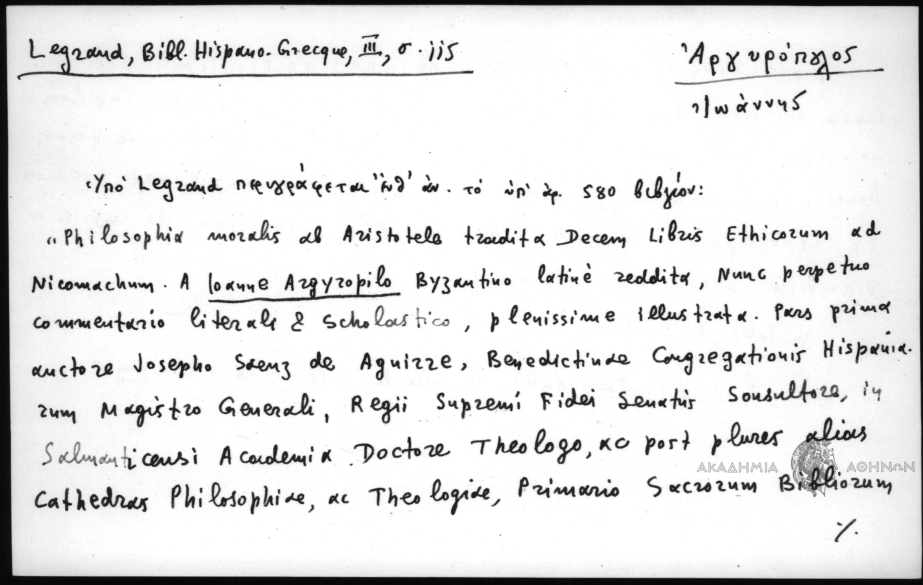 Legrand, Bibl. Hispano-Grecque, III, σ. 115
Ἀργυρόπουλος
Ἰωάννης
Ὑπό Legrand περιγράφεται ἐνθ' ἀν. τό ὑπ' ἀρ. 580 βιβλίον:
"Philosophia moralis ab Aristotele tradita Decem Libris Ethicorum ad
Nicomachum. A Ioanne Argyropilo Byzantino latinè reddita, Nunc perpetuo
commentario literali & scholastico, plenissime illustrata. Pars prima
auctore Josepho Saenz de Aguirre, Benedictinae Congregationis Hispania-
rum Magistro Generali, Regii Supremi Fidei Senatûs Sonsultore, in
Salmanticensi Academia Doctore Theologo, ac post plures alias
Cathedras Philosophiae, ac Theologiae, Primario Sacrorum Bibliorum
ΑΚΑΔΗΜΙΑ ΑΘΗΝΩΝ
%.